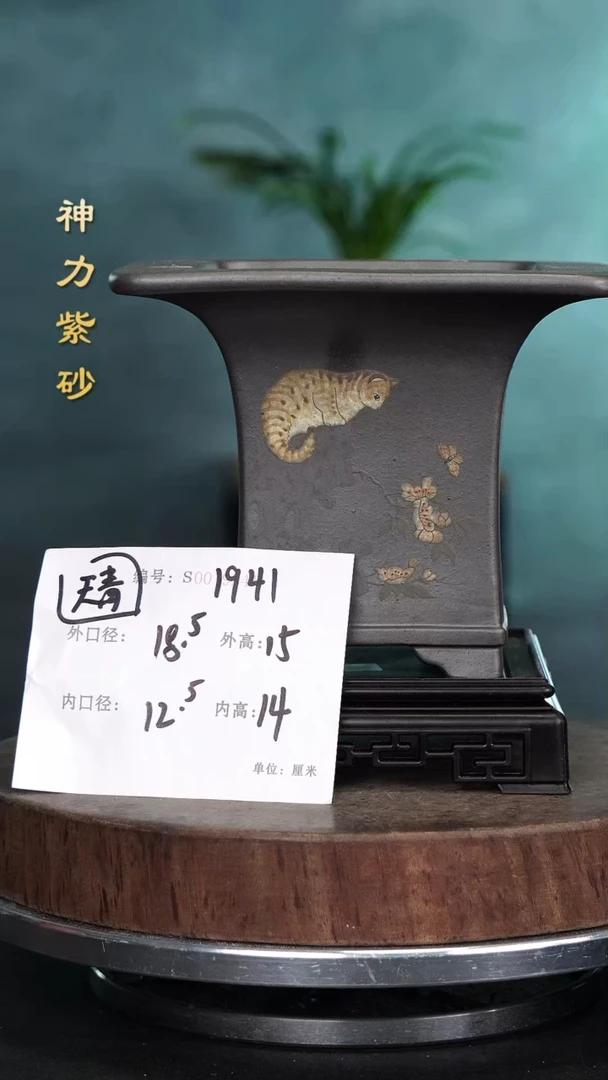 神力紫砂
天青 编号：S00 1941
外口径： 18.5 外高：15
内口径： 12.5 内高：14
单位：厘米